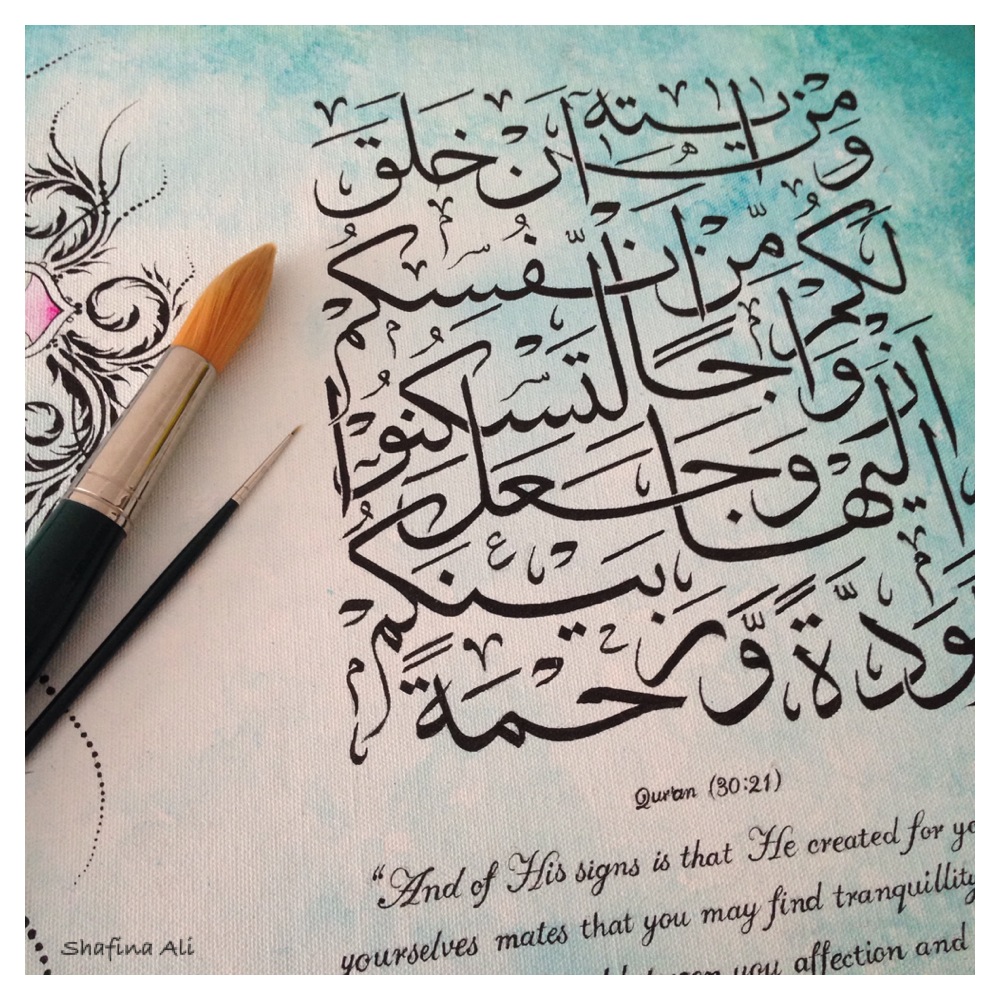 وَمِنْ اٰيٰتِهٖٓ اَنْ خَلَقَ
لَكُمْ مِّنْ اَنْفُسِكُمْ
اَزْوَاجًا لِّتَسْكُنُوْٓا
اِلَيْهَا وَجَعَلَ
بَيْنَكُمْ
وَدَّةً وَّرَحْمَةً
Qur'an (30:21)
“And of His signs is that He created for yo
yourselves mates that you may find tranquillity
between you affection and
Shafina Ali